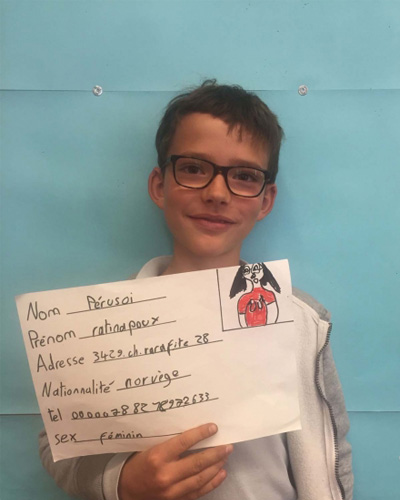 Nom Pérusoi
Prénom ratinapoux
Adresse 3429.ch.rarafite 28
Nationnalité norvège
tel
sex féminin